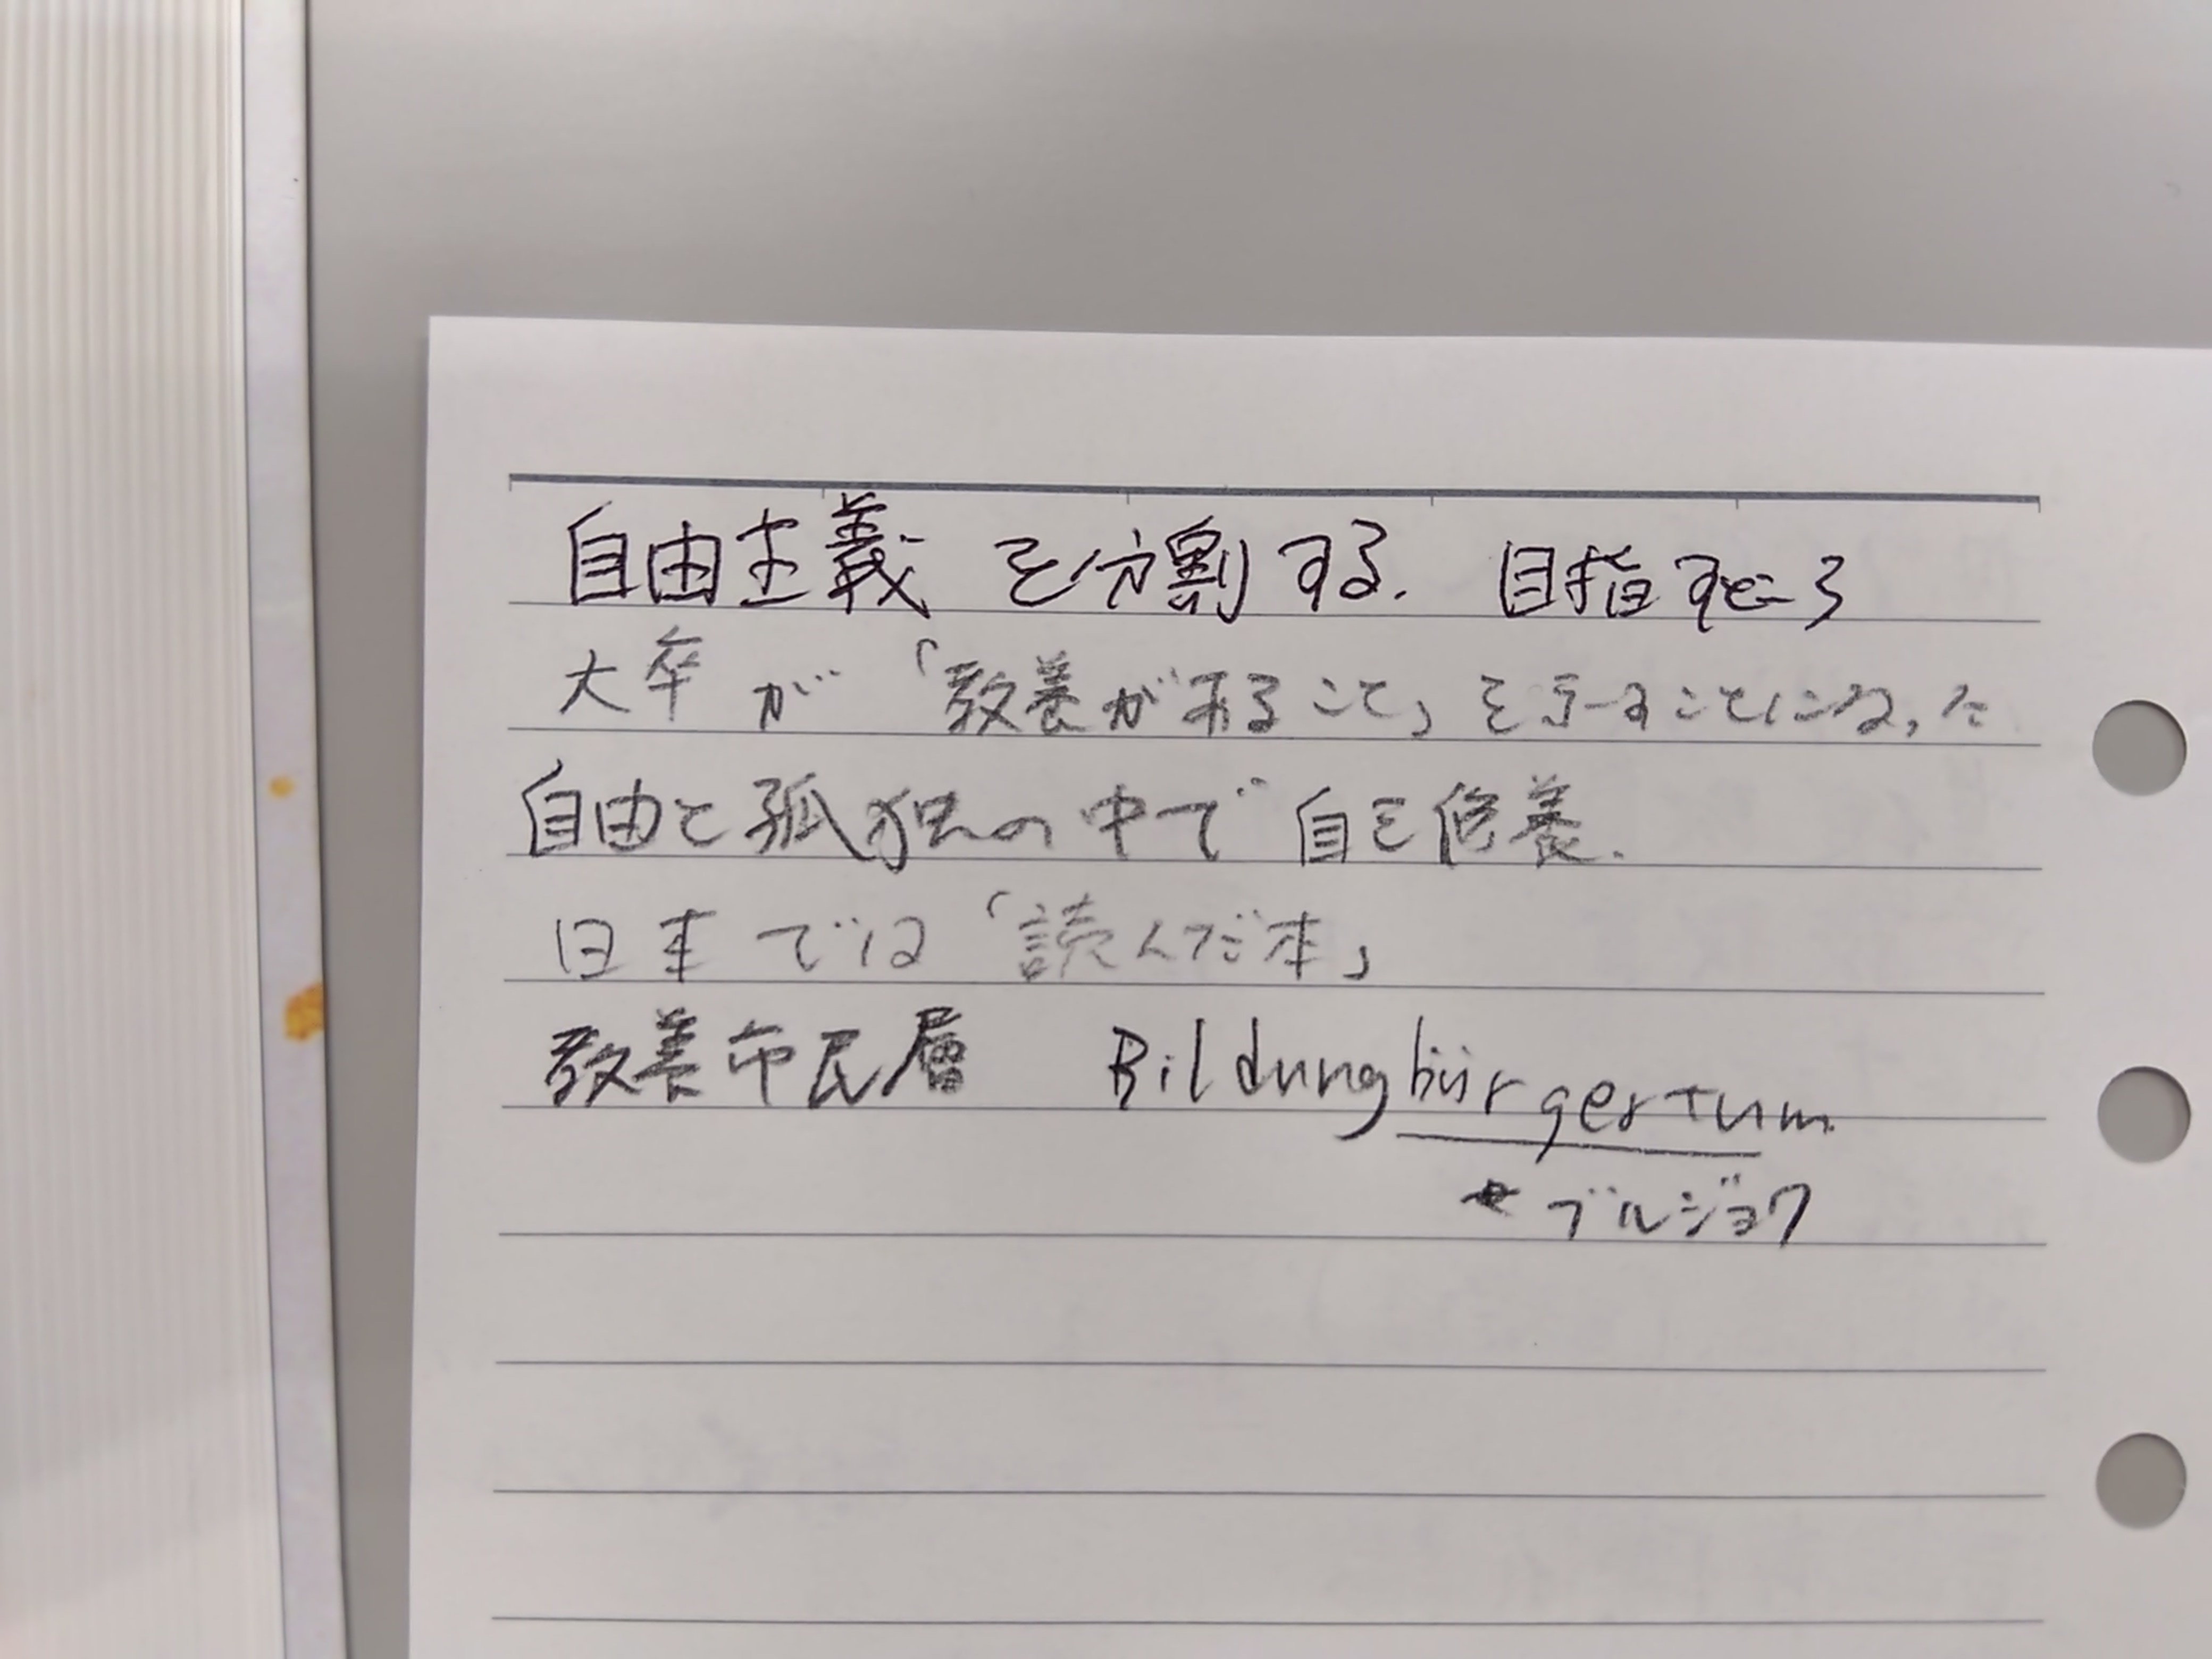 自由主義を分割する. 目指すところ
大卒が「教養があること」を示すことになった
自由と孤独の中で自己修養.
日本では「読んだ本」
教養市民層 Bildungbürgertum
ブルジョワ